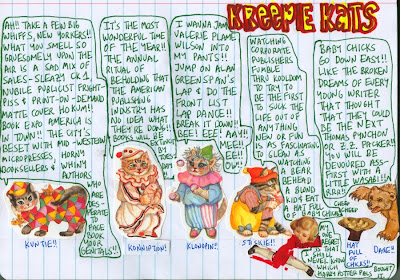 KREEPIE KATS
AH!! TAKE A FEW BIG
WHIFFS, NEW YORKERS!!
WHAT YOU SMELL SO
GRUESOMELY UPON THE
AIR IS A SAD MIX OF
SALES-SLEAZY CK &
NUBILE PUBLICIST FRIGHT-
PISS & PRINT-ON-DEMAND
MATTE COVER HORMONES!
BOOK EXPO AMERICA IS
IN TOWN!! THE CITY'S
BESET WITH MID-WESTERN
MICROPRESSES, HORNY
BOOKSELLERS & WHINY
AUTHORS
WHO
ARE
DES-
PERATE
TO
FACE
BOOK
YOUR
GENITALS!!
KUNTIE!!
IT'S THE MOST
WONDERFUL TIME
OF THE YEAR!!
THE ANNUAL
RITUAL OF
BEHOLDING THAT
THE AMERICAN
PUBLISHING
INDUSTRY HAS
NO IDEA WHAT
THEY'RE DOING!!
BOOKS WILL BE
EXTINCT
BY
KONNIPTION!
I WANNA JAM
VALERIE PLAME
WILSON INTO
MY PANTS!!
JUMP ON ALAN
GREENSPAN'S
LAP & DO THE
FRONT LIST
LAP DANCE!!
BREAK IT DOWN!!
BEE! EEE! AAY!!
MEE!
EEE!
OW!!
KLONOPIN!!
WATCHING
CORPORATE
PUBLISHERS
FUMBLE
THRU KOOLDOM
TO TRY TO
BE THE FIRST
TO SUCK THE
LIFE OUT OF
ANYTHING
NEW OR FUN
IS AS FASCINATING
TO CLEM AS
WATCHING A
BEAR BEHEAD
A BLOND
KID & EAT HIS
HAT FULL
OF BABY CHICKS!
STICKIE!!
MY
ONE
REGRET
IS THAT
I
SHALL
NEVER KNOW
WHICH
HARRY POTTER PALS
DOINKT
IT.
BABY CHICKS
GO DOWN EASY!!
LIKE THE BROKEN
DREAMS OF EVERY
YOUNG WRITER
THAT THOUGHT
THAT THEY COULD
BE THE NEXT
THOMAS PYNCHON
OR Z.Z. PACKER!!
YOU WILL BE
DEVOURED ASS-
FIRST WITH A
LITTLE WASABI!!
CHEEP
CHEEP
HAT
FULL OF
CHIKS!!
DANE!!